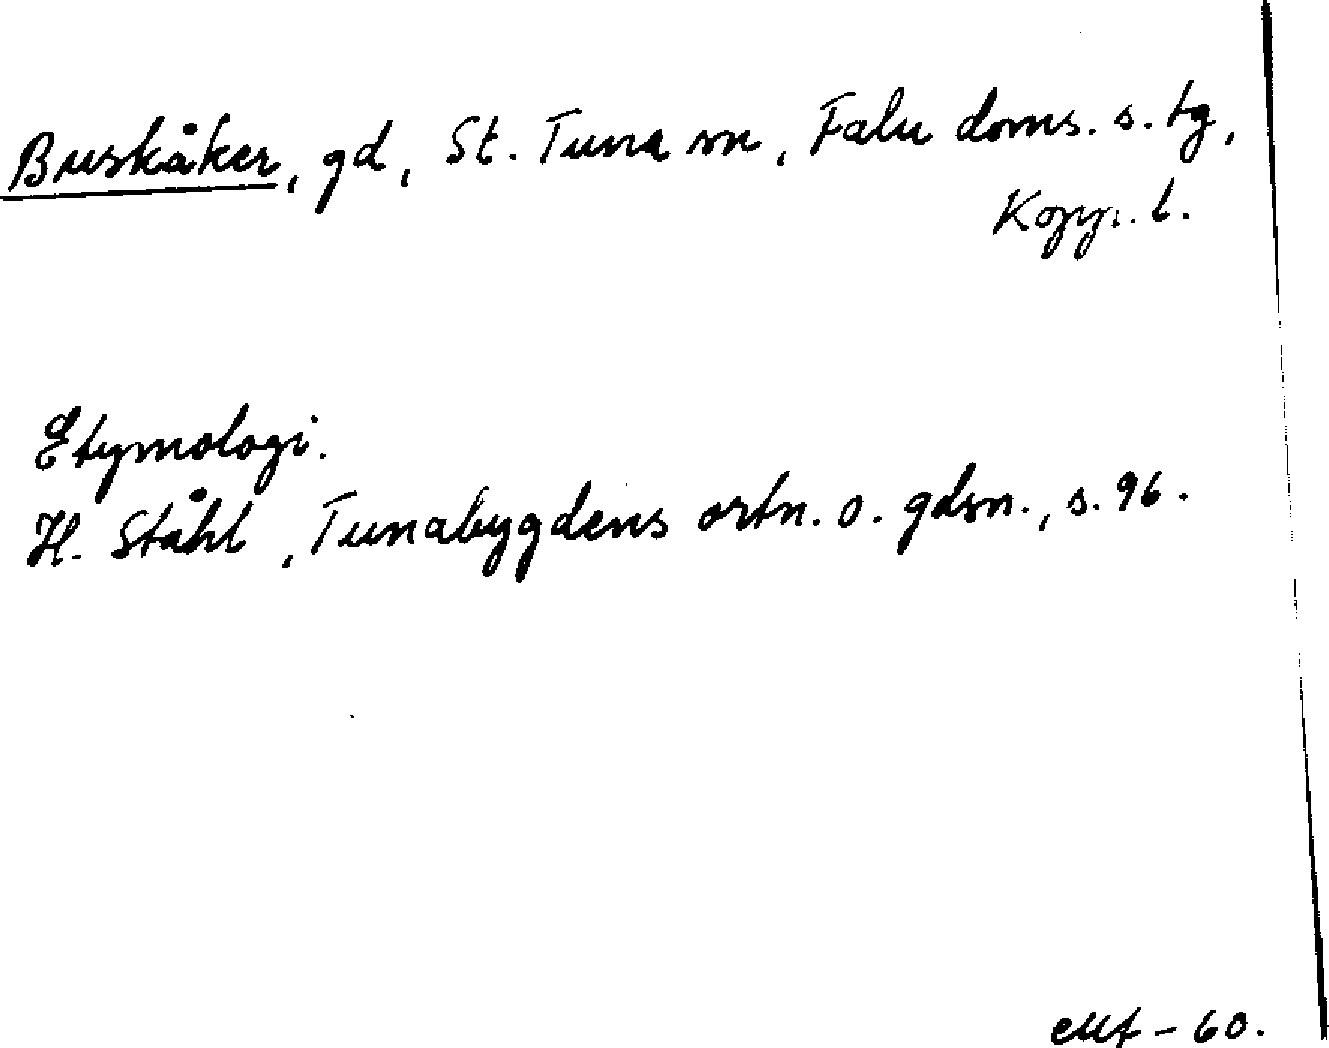 Buskåker, gd, St. Tuna sn, Falu doms. s. tg,
Kopp. l.
Etymologi.
H. Ståhl, Tunabygdens ortn. o. gdsn., s. 96.
-60.